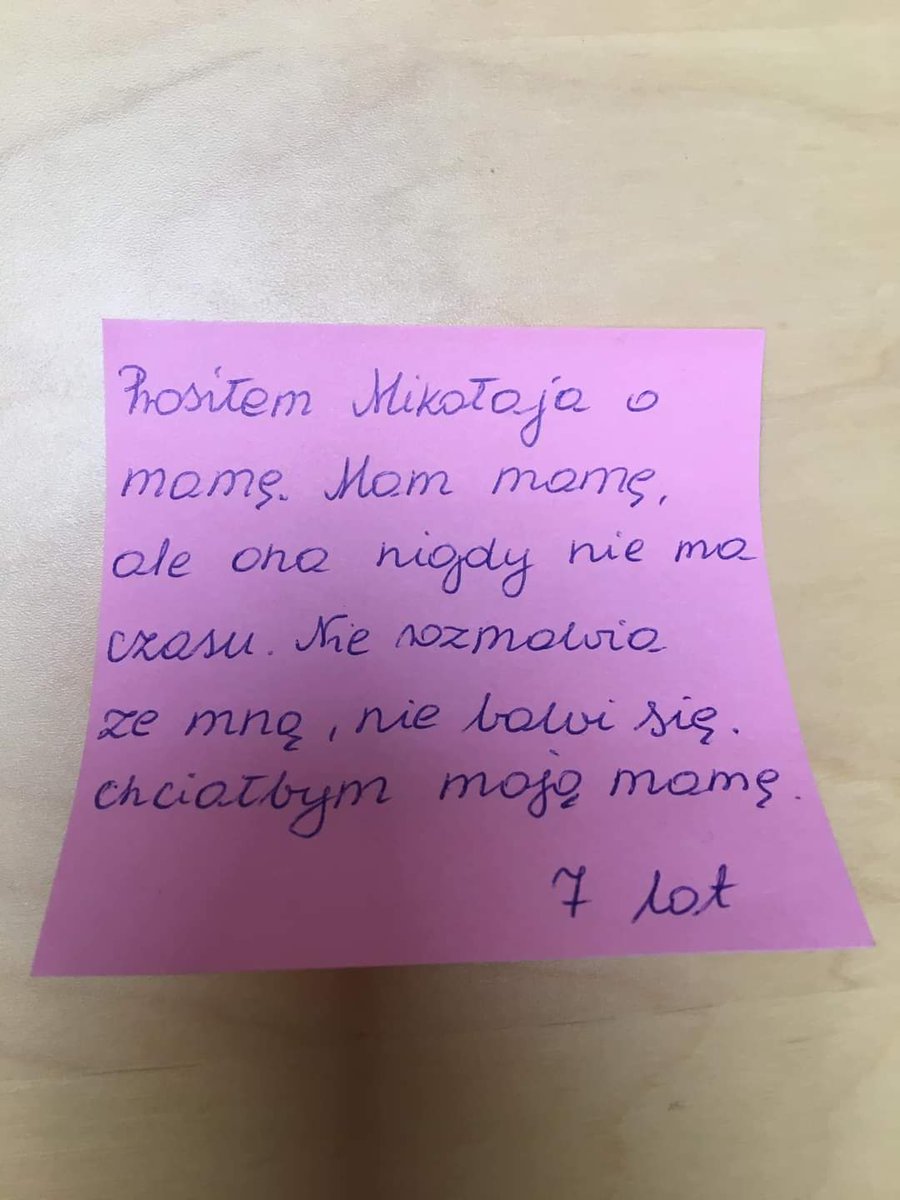 Prosiłem Mikołaja o
mamę. Mam mamę,
ale ona nigdy nie ma
czasu. Nie rozmawia
ze mną, nie bawi się.
chciałbym moją mamę.
7 lat